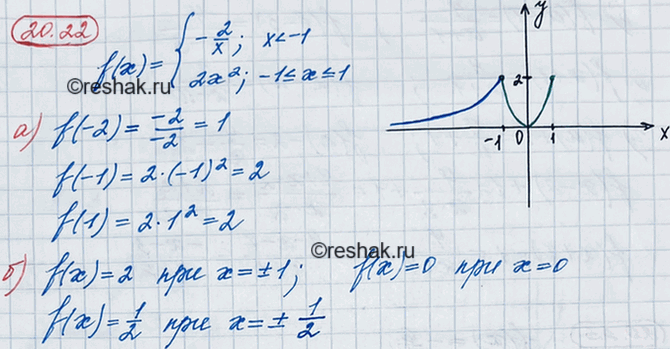 20.22
f(x) = { -2/x; x<-1
2x²; -1≤x≤1
©reshak.ru
а) f(-2) = -2/-2 = 1
f(-1) = 2·(-1)² = 2
f(1) = 2·1² = 2
y
2
-1 0 1 x
©reshak.ru
б) f(x) = 2 при x = ±1; f(x) = 0 при x = 0
f(x) = 1/2 при x = ± 1/2